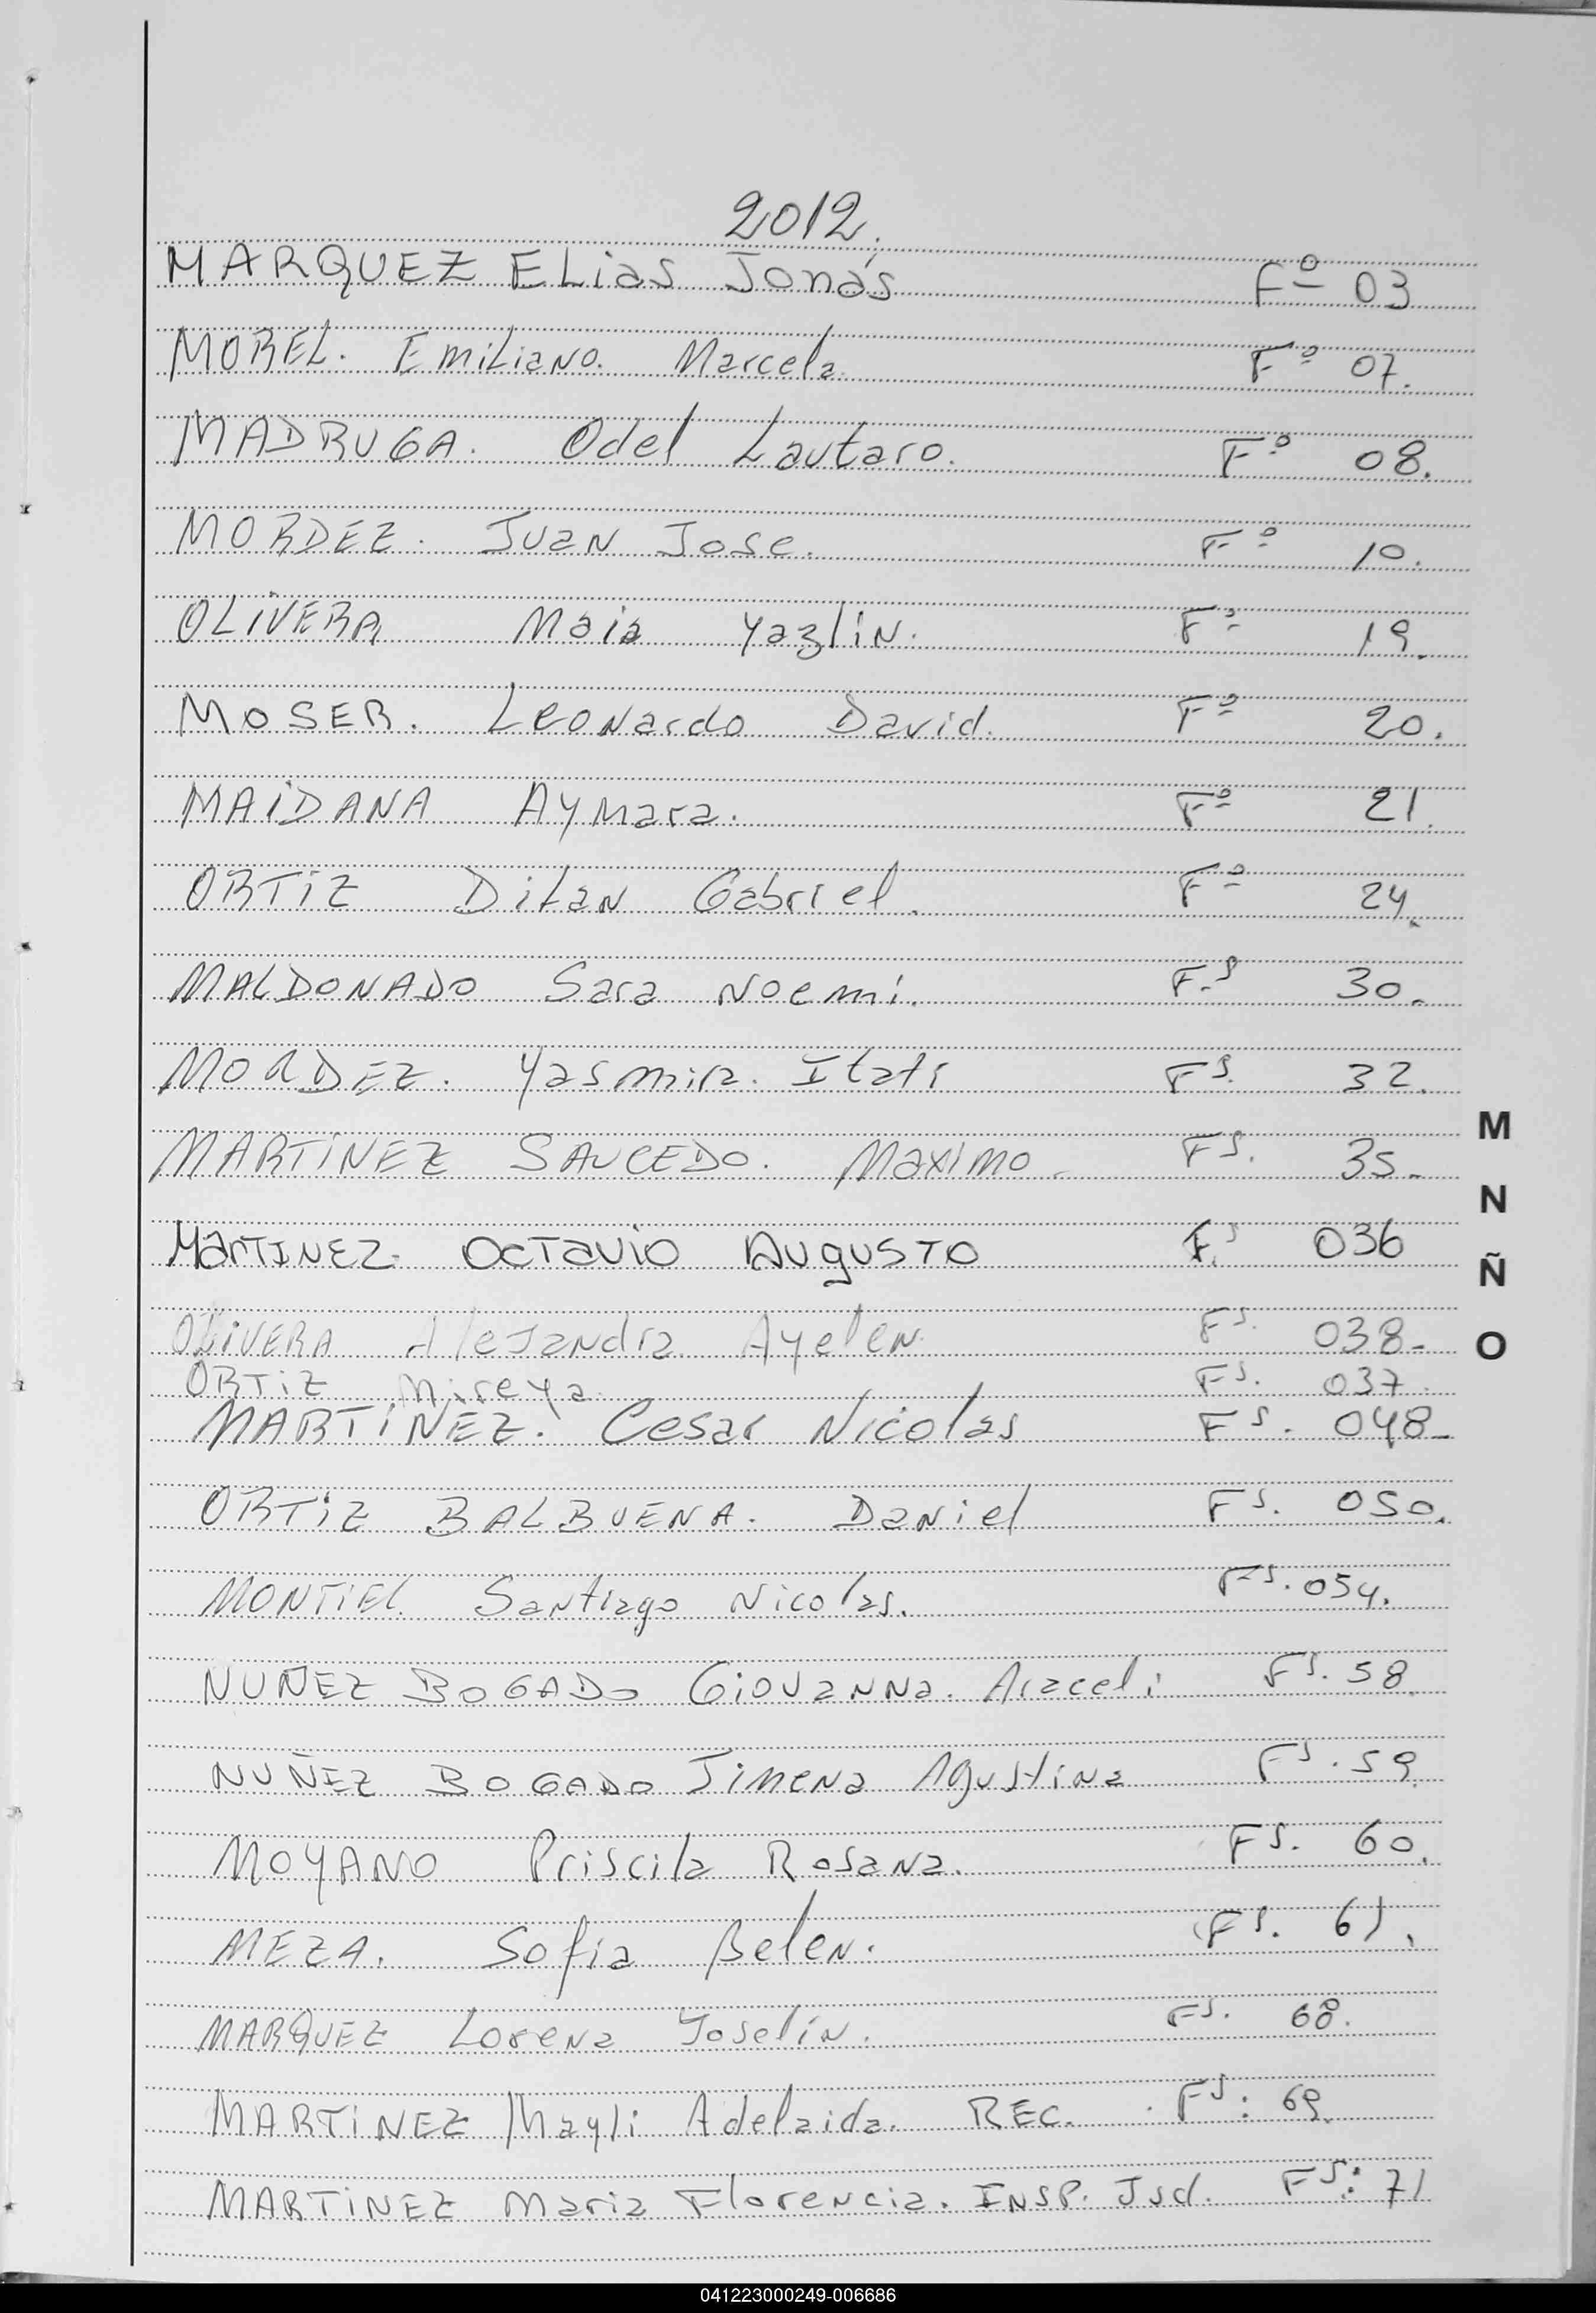 2012.
MARQUEZ ELias Jonás Fº 03
MOREL. EmiLiaNo. Marcela Fº 07.
MADRUGA. Odel Lautaro. Fº 08.
MORDEZ. JuaN Jose. Fº 10.
OLiVERA Maia Yazlin. Fº 19.
MOSER. LeoNardo David. Fº 20.
MAiDANA AyMara. Fº 21.
ORTiZ DiLaN Gabriel. Fº 24.
MALDONADO Sara Noemi. F.s 30.
MORDEZ. Itati Fs. 32.
MARTiNEZ SAUCEDO. Maximo. Fs. 35.
MarTINEZ. OCTavio AugusTO F.s 036
OLiVERA AleJaNdra AyeleN. Fs. 038.
ORTiZ Mireya. Fs. 037
MARTiNEZ. Cesar Nicolas Fs. 048.
ORTiZ BALBUENA. DaNiel Fs. 050.
MONTiEL Santiago Nicolas. Fs. 054.
NUÑEZ BOGADO GiovaNNa. Araceli Fs. 58
NUÑEZ BOGADO JimeNa AgustiNa Fs. 59
MOYANO Priscila RosaNa. Fs. 60.
MEZA. Sofia BeleN. Fs. 61.
MARQUEZ LoreNa Joselin. Fs. 68.
MARTiNEZ Adelaida. REC. Fs: 69.
MARTiNEZ Maria FloreNcia. INSP. Jud. Fs: 71
M
N
Ñ
O
041223000249-006686